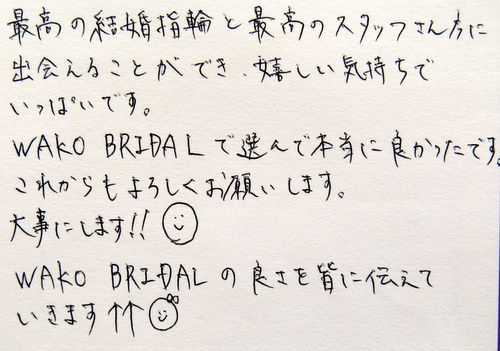 最高の結婚指輪と最高のスタッフさん方に
出会えることができ、嬉しい気持ちで
いっぱいです。
WAKO BRIDALで選んで本当に良かったです。
これからもよろしくお願いします。
大事にします!!
WAKO BRIDALの良さを皆に伝えて
いきます↑↑